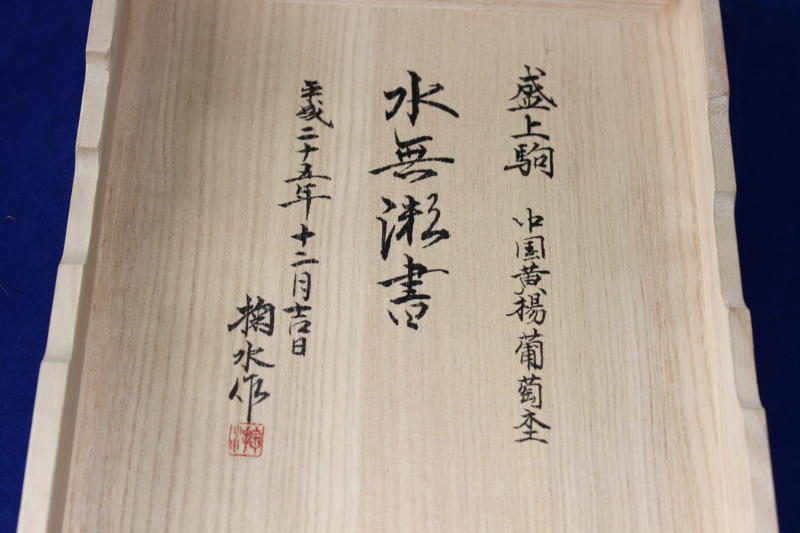 盛上駒 中国黄楊葡萄杢
水無瀬書
平成二十五年十二月吉日
掬水作
掬水